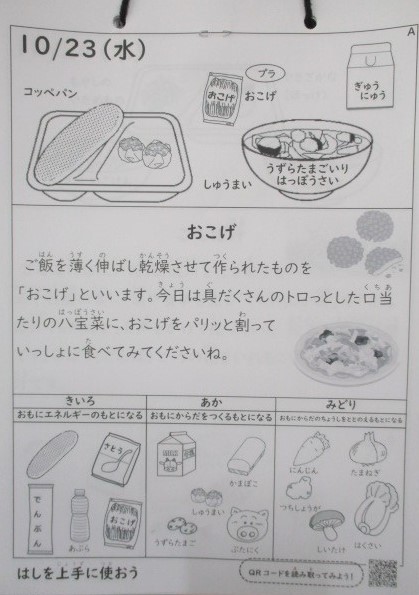 A
10/23(水)
プラ
コッペパン
おこげ
おこげ
ぎゅう
にゅう
しゅうまい
うずらたまごいり
はっぽうさい
おこげ
ご飯を薄く伸ばし乾燥させて作られたものを
「おこげ」といいます。今日は具だくさんのトロっとした口当
たりの八宝菜に、おこげをパリッと割って
いっしょに食べてみてくださいね。
きいろ
おもにエネルギーのもとになる
さとう
でんぷん
あぶら
おこげ
あか
おもにからだをつくるもとになる
かまぼこ
しゅうまい
うずらたまご
ぶたにく
みどり
おもにからだのちょうしをととのえるもとになる
にんじん
たまねぎ
つちしょうが
しいたけ
はくさい
はしを上手に使おう
QRコードを読み取ってみよう!